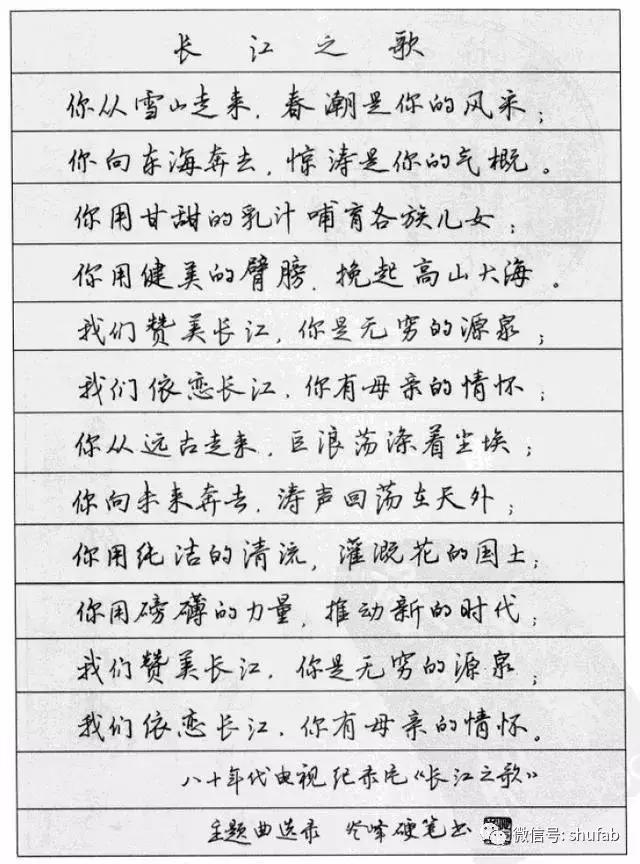 长江之歌
你从雪山走来，春潮是你的风采；
你向东海奔去，惊涛是你的气概。
你用甘甜的乳汁哺育各族儿女；
你用健美的臂膀，挽起高山大海。
我们赞美长江，你是无穷的源泉；
我们依恋长江，你有母亲的情怀；
你从远古走来，巨浪荡涤着尘埃；
你向未来奔去，涛声回荡在天外；
你用纯洁的清流，灌溉花的国土；
你用磅礴的力量，推动新的时代；
我们赞美长江，你是无穷的源泉；
我们依恋长江，你有母亲的情怀。
八十年代电视纪录片《长江之歌》
主题曲选录 峰硬笔书
微信号: shufab